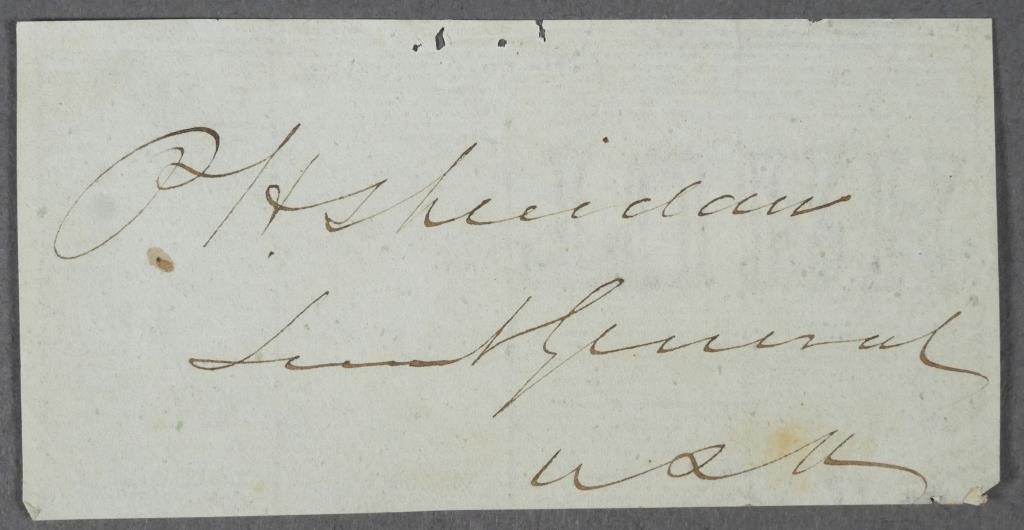 P. H. Sheridan
Lieut General
U S A